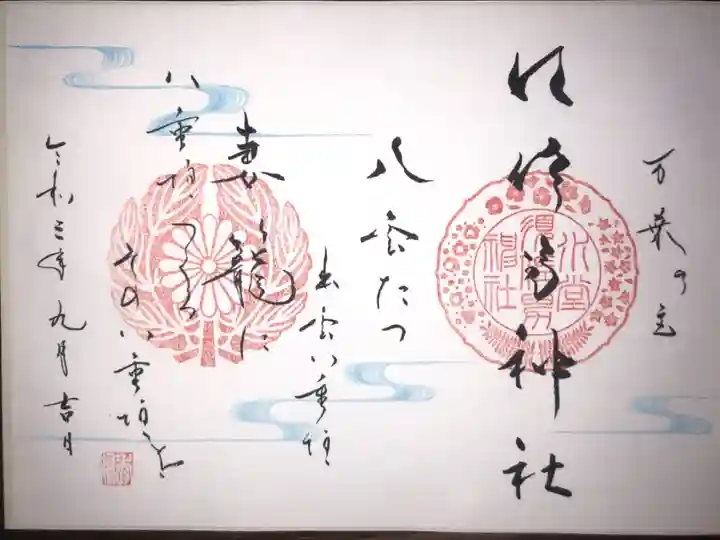 万葉の主
須佐男神社
八雲たつ
出雲八重垣
妻籠に
八重垣つくる
その八重垣を
令和三年九月吉日